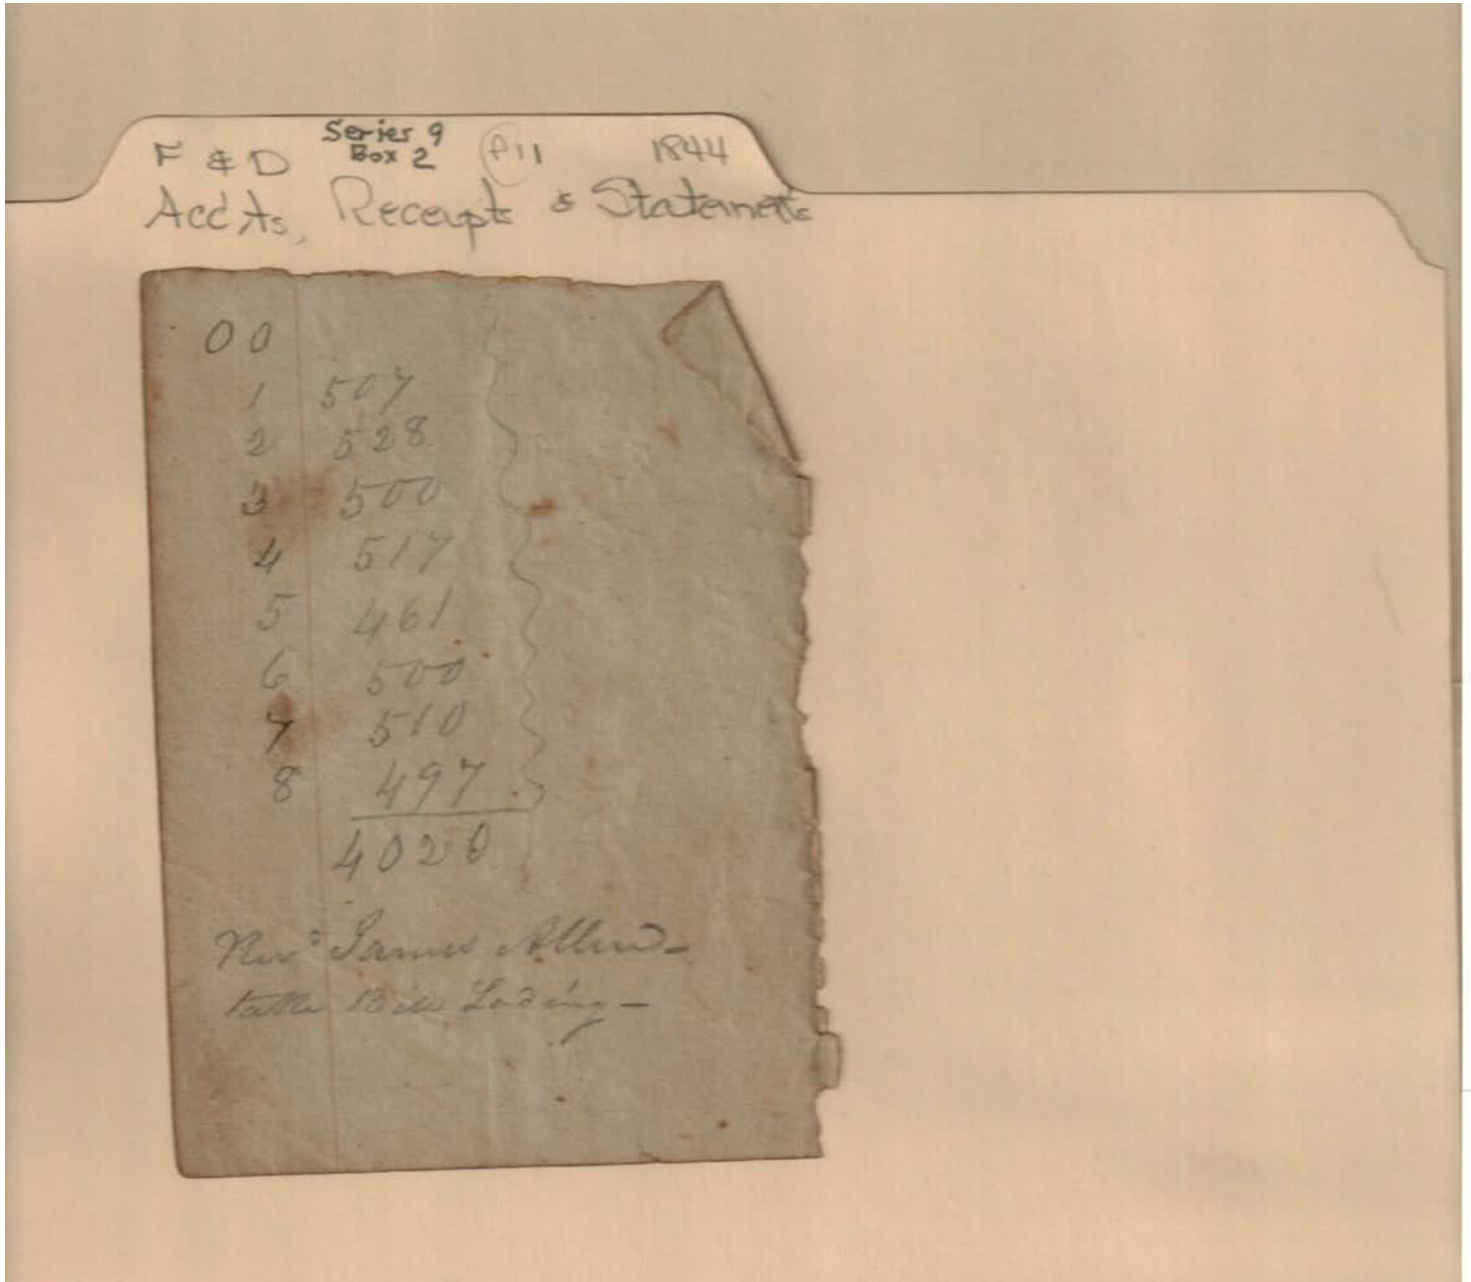 F & D Series 9 Box 2 1844
Acc'ts, Receipts & Statements
00
1 507
2 528
3 500
4 517
5 461
6 500
7 510
8 497
4020
James Allen -
Bill Lading -